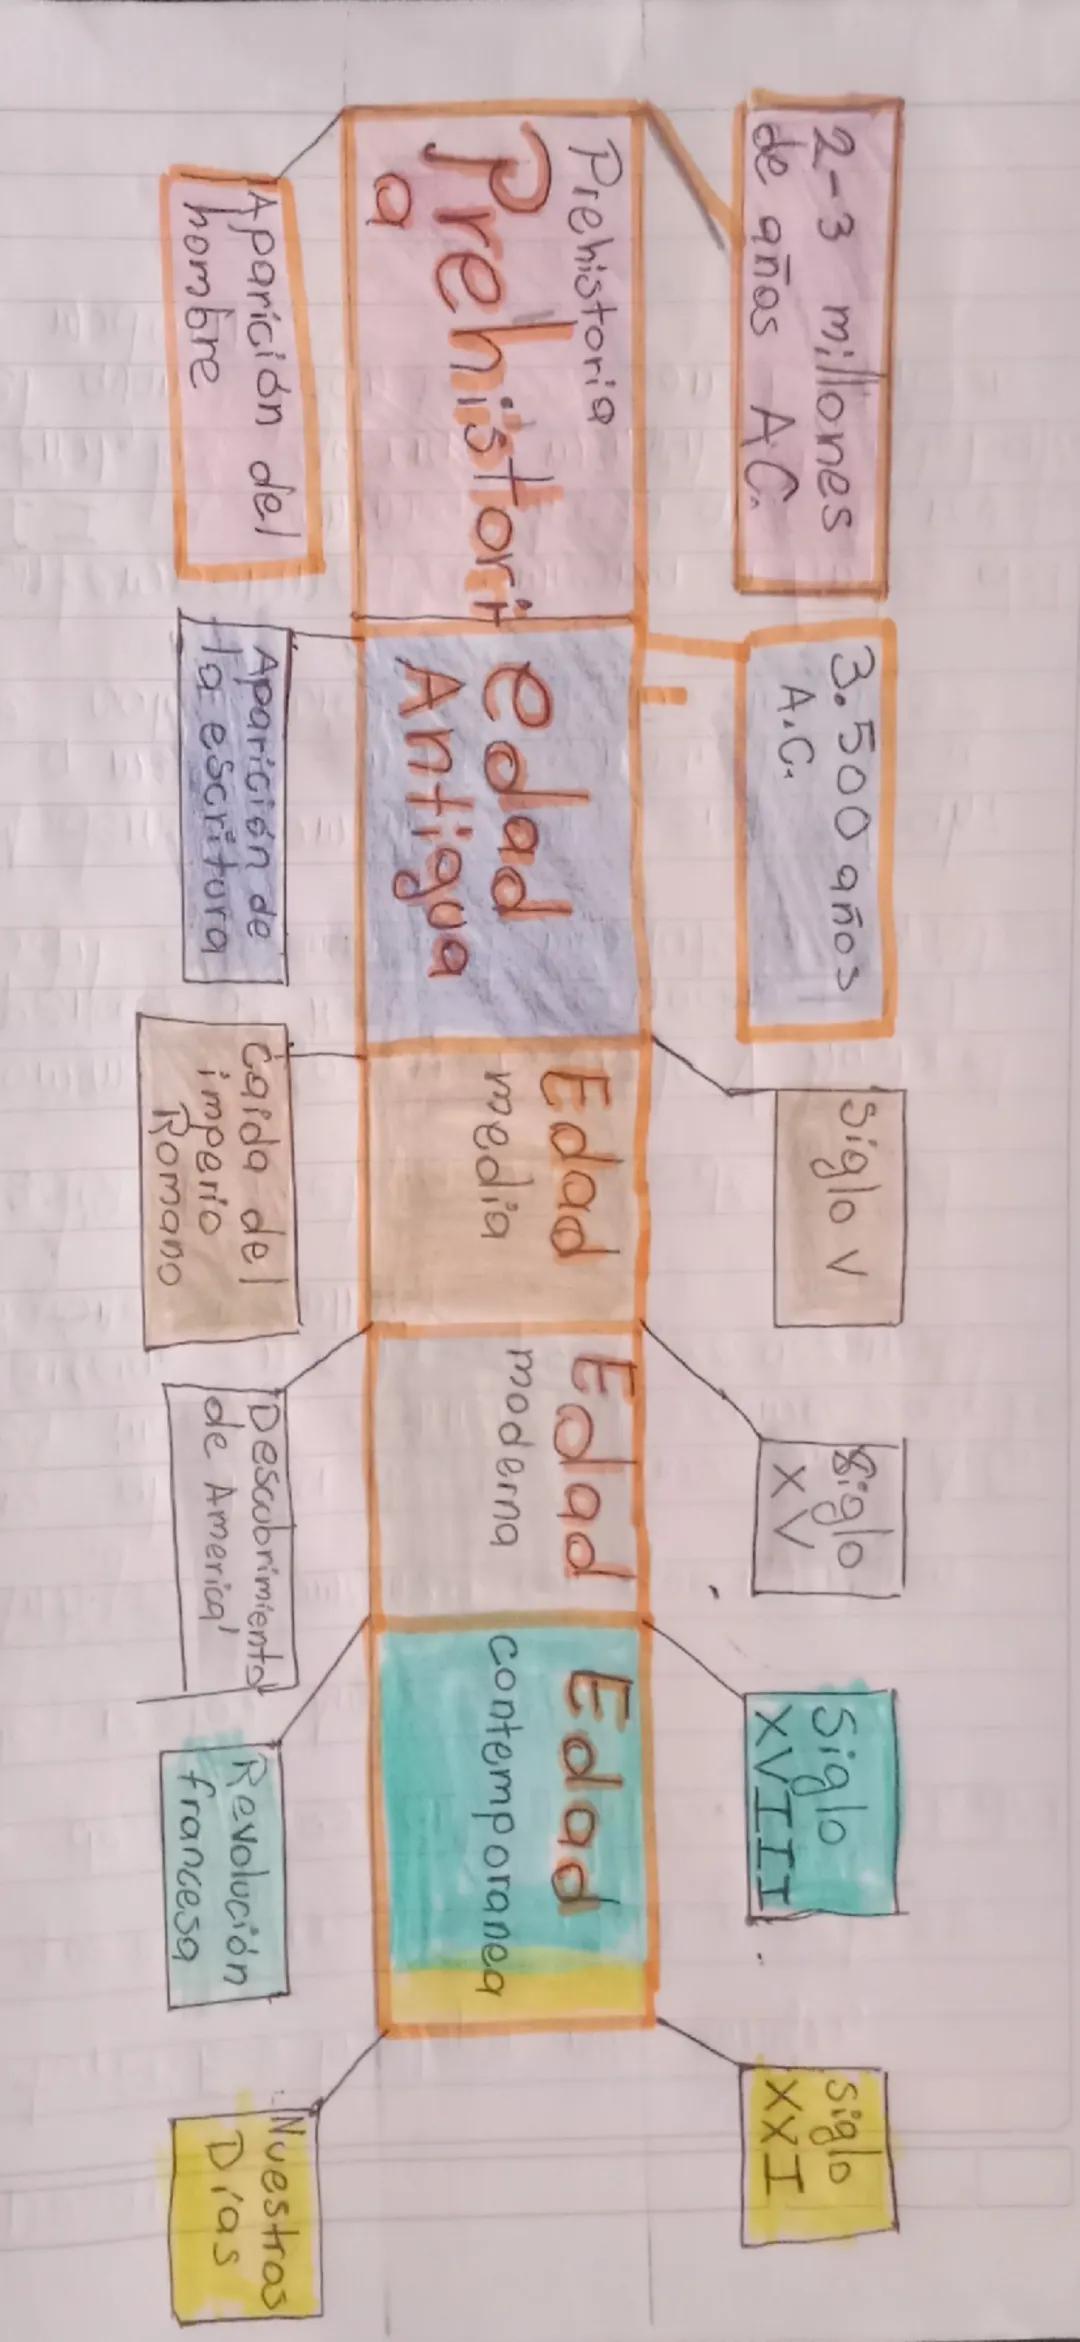 2-3 millones
de años A.C.
3.500 años
A.C.
Siglo V
Siglo
XV
Siglo
XVIII
Siglo
XXI
Prehistoria
Prehistori
a
edad
Antigua
Edad
media
Edad
moderna
Edad
contemporanea
Aparición del
hombre
Aparición de
la escritura
Caida del
imperio
Romano
Descubrimiento
de America
Revolución
francesa
Nuestros
Días